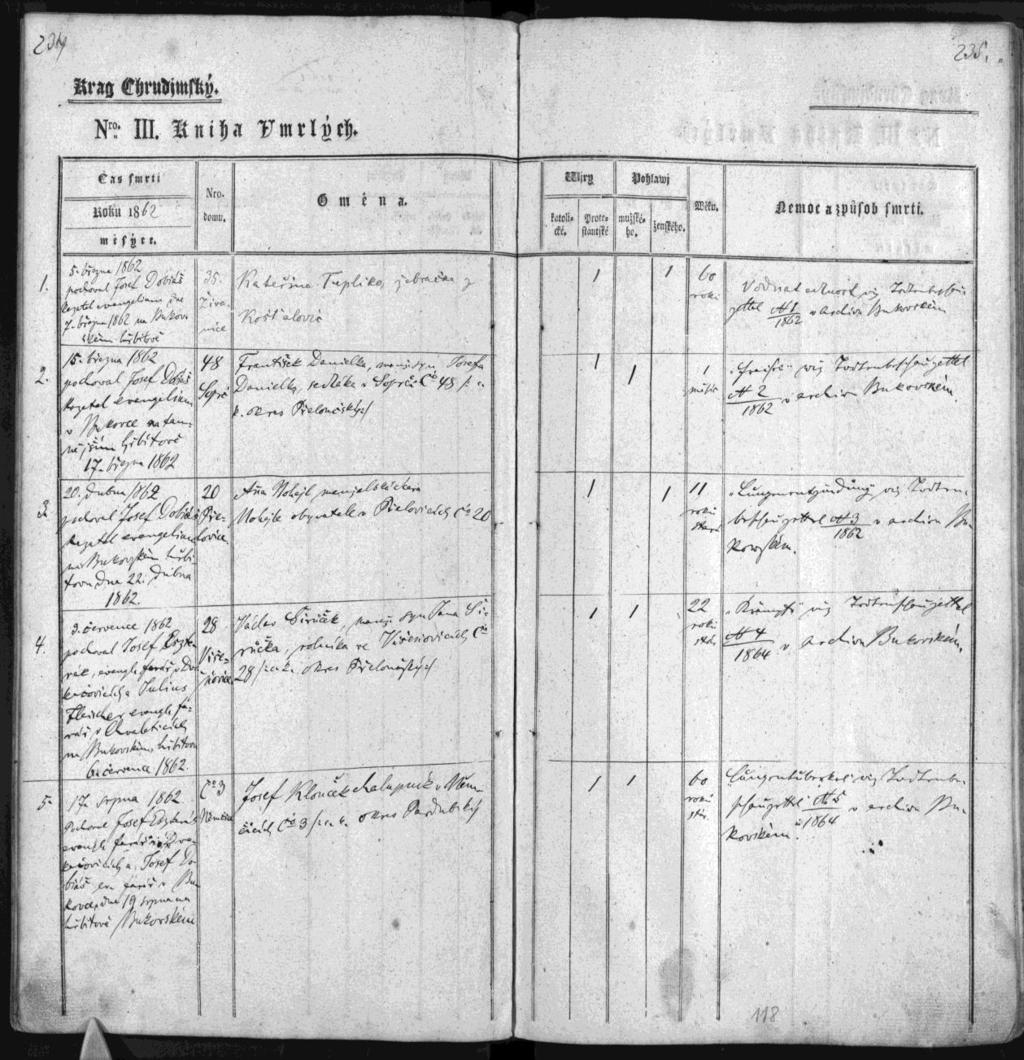 234
235.
Krag Chrudjmský.
Nro. III. Kniha Vmrlých.
Čas smrti
Roku 1862
měsýce.
Nro. domu.
Gména.
Wjry
katolické.
Protestantské
Pohlawj
mužského.
ženského.
Wěku.
Nemoc a způsob smrti.
1.
5. března 1862
pochoval Josef Dobiáš
kazatel evangelium dne
7. března 1862 na Bukov
ském hřbitově
35.
Živa
nice
Kateřina
z
Košťálovic
1
1
60
roků
Vodnatelnost viz
1/1862 v archivu Bukovském
2.
15. března 1862
pochoval Josef Dobiáš
kazatel evangelium
v Bukovce na tam
nějším hřbitově
17. března 1862
48
Sopřč
František Danielka, manž. syn Josefa
Danielky, sedláka v Sopřči Č 48
okres Přeloučský
1
1
1
měsíc
"Fraisen" viz Todtenbeschauzettel
2/1862 v archivu Bukovském.
3.
20. dubna 1862
pochoval Josef Dobiáš
kazatel evangelium
na Bukovském hřbi
tovu dne 22. dubna
1862.
20
Přelovice
Anna Mohejl, manželská dcera
Mohejla obyvatele v Přelovicích Č 20
1
1
11
roků
stará
"Lungenentzündung" viz Todten
beschauzettel 3/1862 v archivu Bu
kovském.
4.
3. července 1862
pochoval Josef
evangl. farář v
a Julius
Fleischer evangl. fa
rář v Chvaleticích
na Bukovském hřbitovu
6. července 1862.
28
Václav Širůček, manž. syn Jana Ši
růčka, rolníka ve
28 okres Přeloučský
1
1
22
roků
stár.
"Krämpfe" viz Todtenbeschauzettel
4/1864 v archivu Bukovském.
5.
17. srpna 1862
pochoval Josef
evangl. farář
a Josef Do
biáš ev. farář v Bu
kovce, dne 19 srpna na
hřbitově Bukovském
Č 3
Josef Klouček chalupník v Něm
čicích Č 3 okres Pardubský
1
1
60
roků
stár.
"Lungentuberkel" viz Todtenbe
schauzettel 5/1864 v archivu Bu
kovském.
118